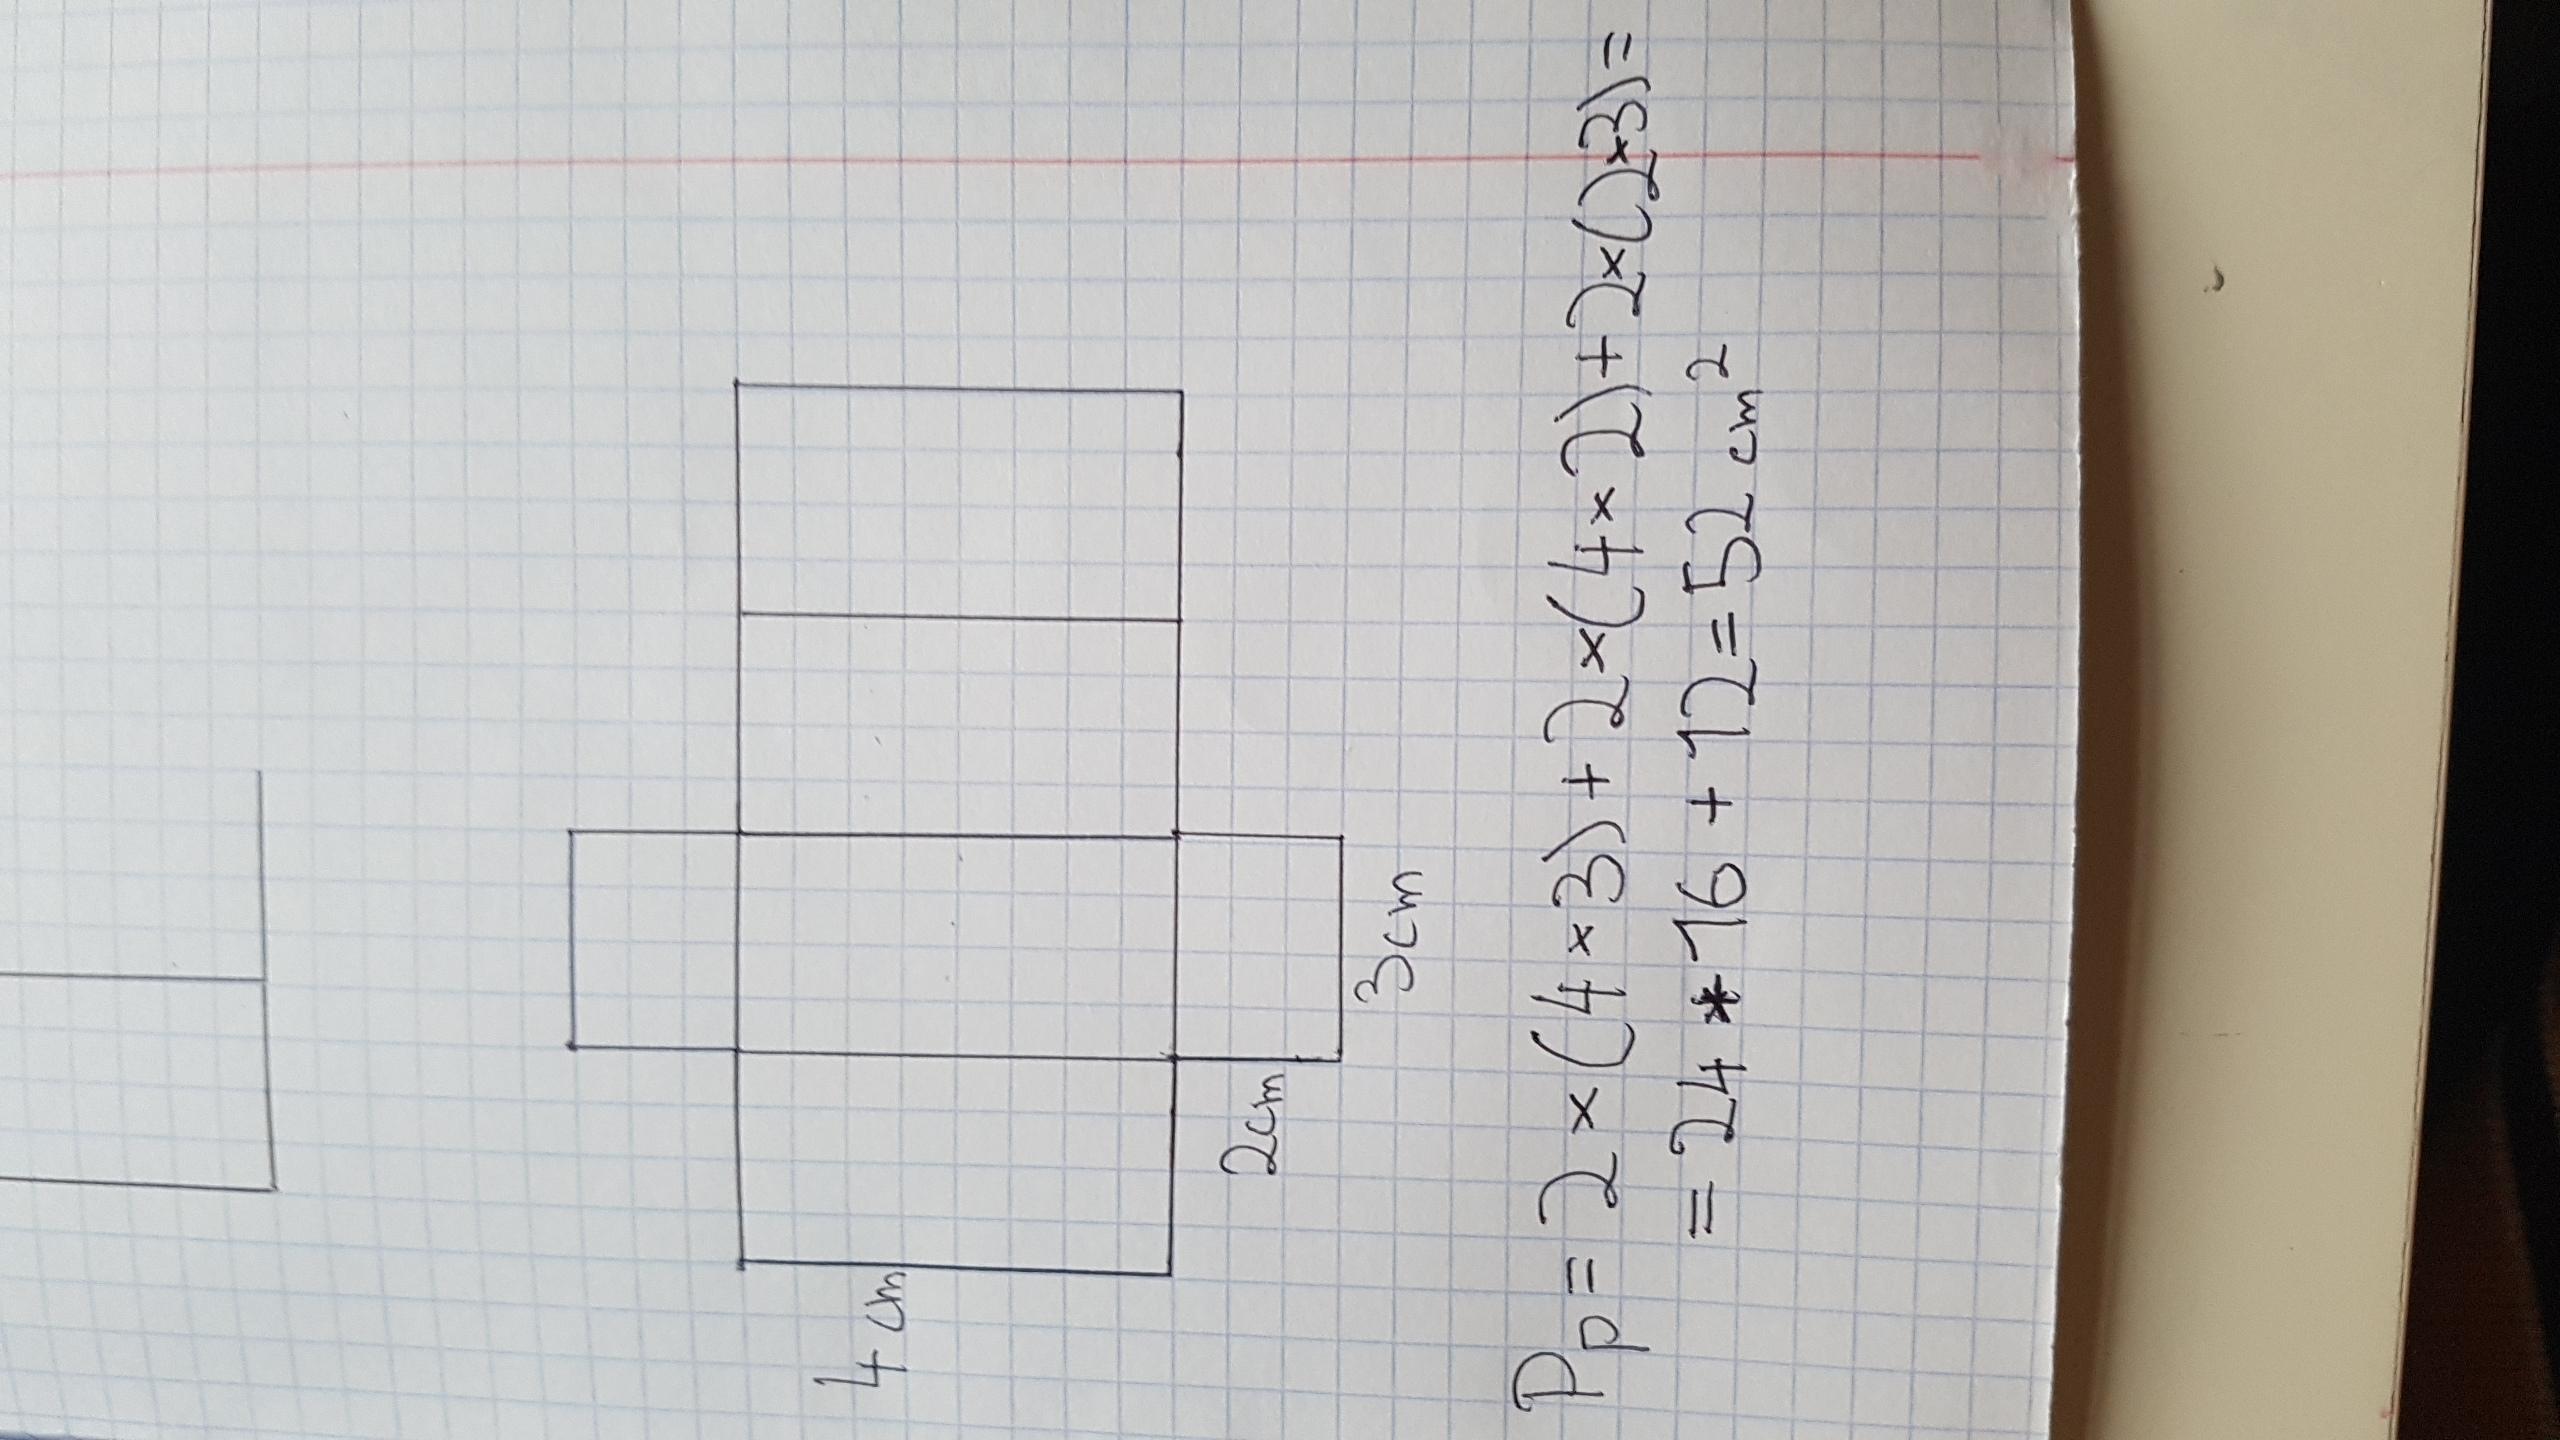 4 cm
2cm
3cm
Pp = 2 × (4 × 3) + 2 × (4 × 2) + 2 × (2 × 3) =
= 24 * 16 + 12 = 52 cm²